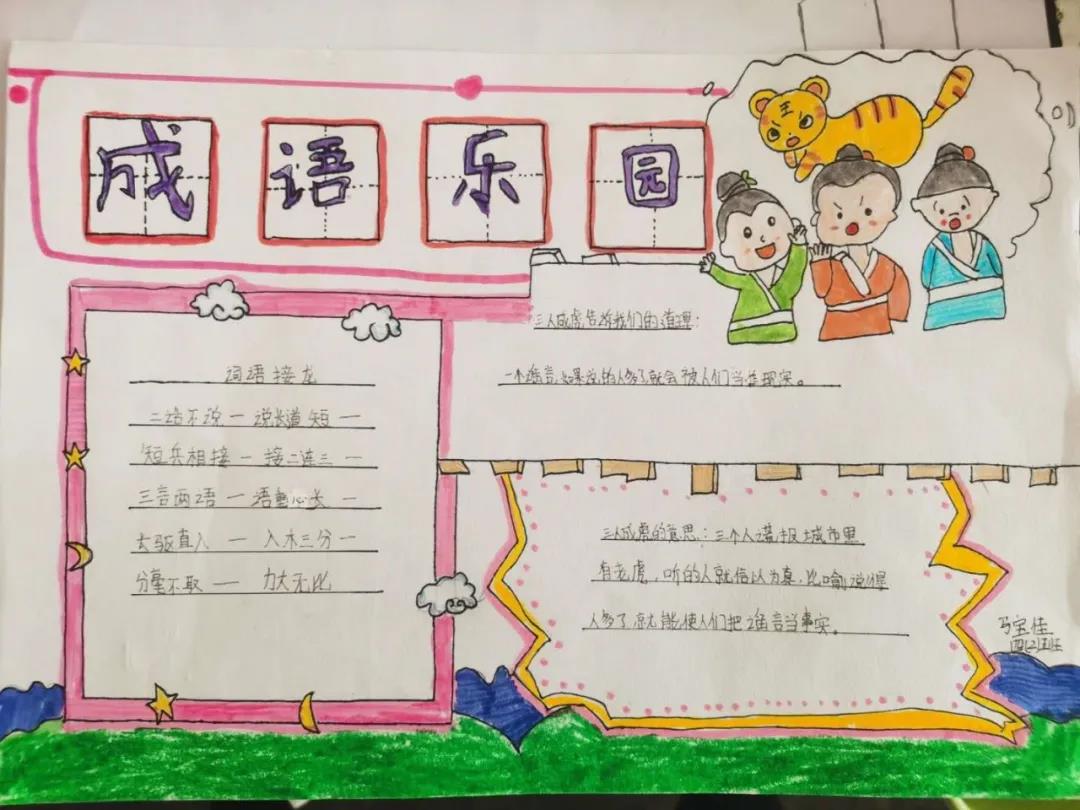 成语乐园
三人成虎告诉我们的道理：
一个谣言，如果说的人多了就会被人们当造现实。
词语接龙
二话不说一说长道短一
短兵相接一接二连三一
三言两语一语重心长一
长驱直入一入木三分一
分毫不取一力大无比
三人成虎的意思：三个人谎报城市里
有老虎，听的人就信以为真，比喻说得
人多了，就能使人们把谣言当事实。
马宝佳
四(2)班
王